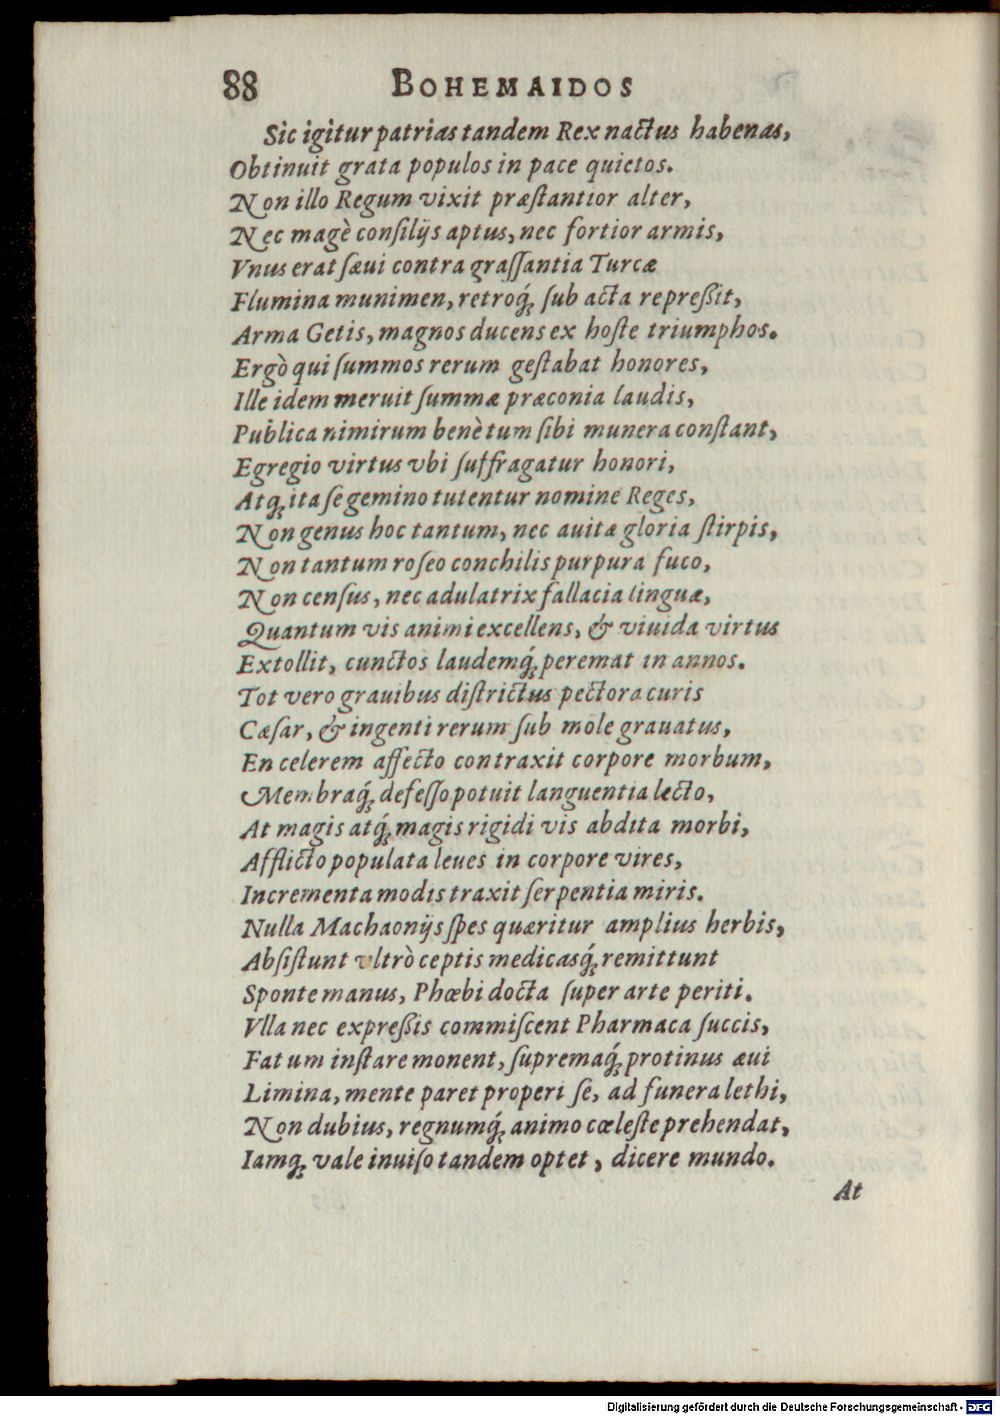 88 BOHEMAIDOS
Sic igitur patrias tandem Rex nactus habenas,
Obtinuit grata populos in pace quietos.
Non illo Regum vixit præſtantior alter,
Nec magè conſilijs aptus, nec fortior armis,
Vnus erat ſæui contra graſſantia Turcæ
Flumina munimen, retroq́ꝫ ſub acta repreßit,
Arma Getis, magnos ducens ex hoſte triumphos.
Ergò qui ſummos rerum geſtabat honores,
Ille idem meruit ſummæ præconia laudis,
Publica nimirum benè tum ſibi munera conſtant,
Egregio virtus vbi ſuffragatur honori,
Atqꝫ ita ſe gemino tutentur nomine Reges,
Non genus hoc tantum, nec auitæ gloria ſtirpis,
Non tantum roſeo conchilis purpura fuco,
Non cenſus, nec adulatrix fallacia linguæ,
Quantum vis animi excellens, & viuida virtus
Extollit, cunctos laudemq́ꝫ peremat in annos.
Tot vero grauibus diſtrictus pectora curis
Cæſar, & ingenti rerum ſub mole grauatus,
En celerem affecto contraxit corpore morbum,
Membraq́ꝫ defeſſo potuit languentia lecto,
At magis atq́ꝫ magis rigidi vis abdita morbi,
Afflicto populata leues in corpore vires,
Incrementa modis traxit ſerpentia miris.
Nulla Machaonijs ſpes quæritur amplius herbis,
Abſiſtunt vltrò ceptis medicasq́ꝫ remittunt
Sponte manus, Phœbi docta ſuper arte periti.
Vlla nec expreßis commiſcent Pharmaca ſuccis,
Fatum inſtare monent, ſupremaq́ꝫ protinus æui
Limina, mente paret properi ſe, ad funera lethi,
Non dubius, regnumq́ꝫ animo cœleſte prehendat,
Iamqꝫ vale inuiſo tandem optet, dicere mundo.
At
Digitalisierung gefördert durch die Deutsche Forschungsgemeinschaft - DFG